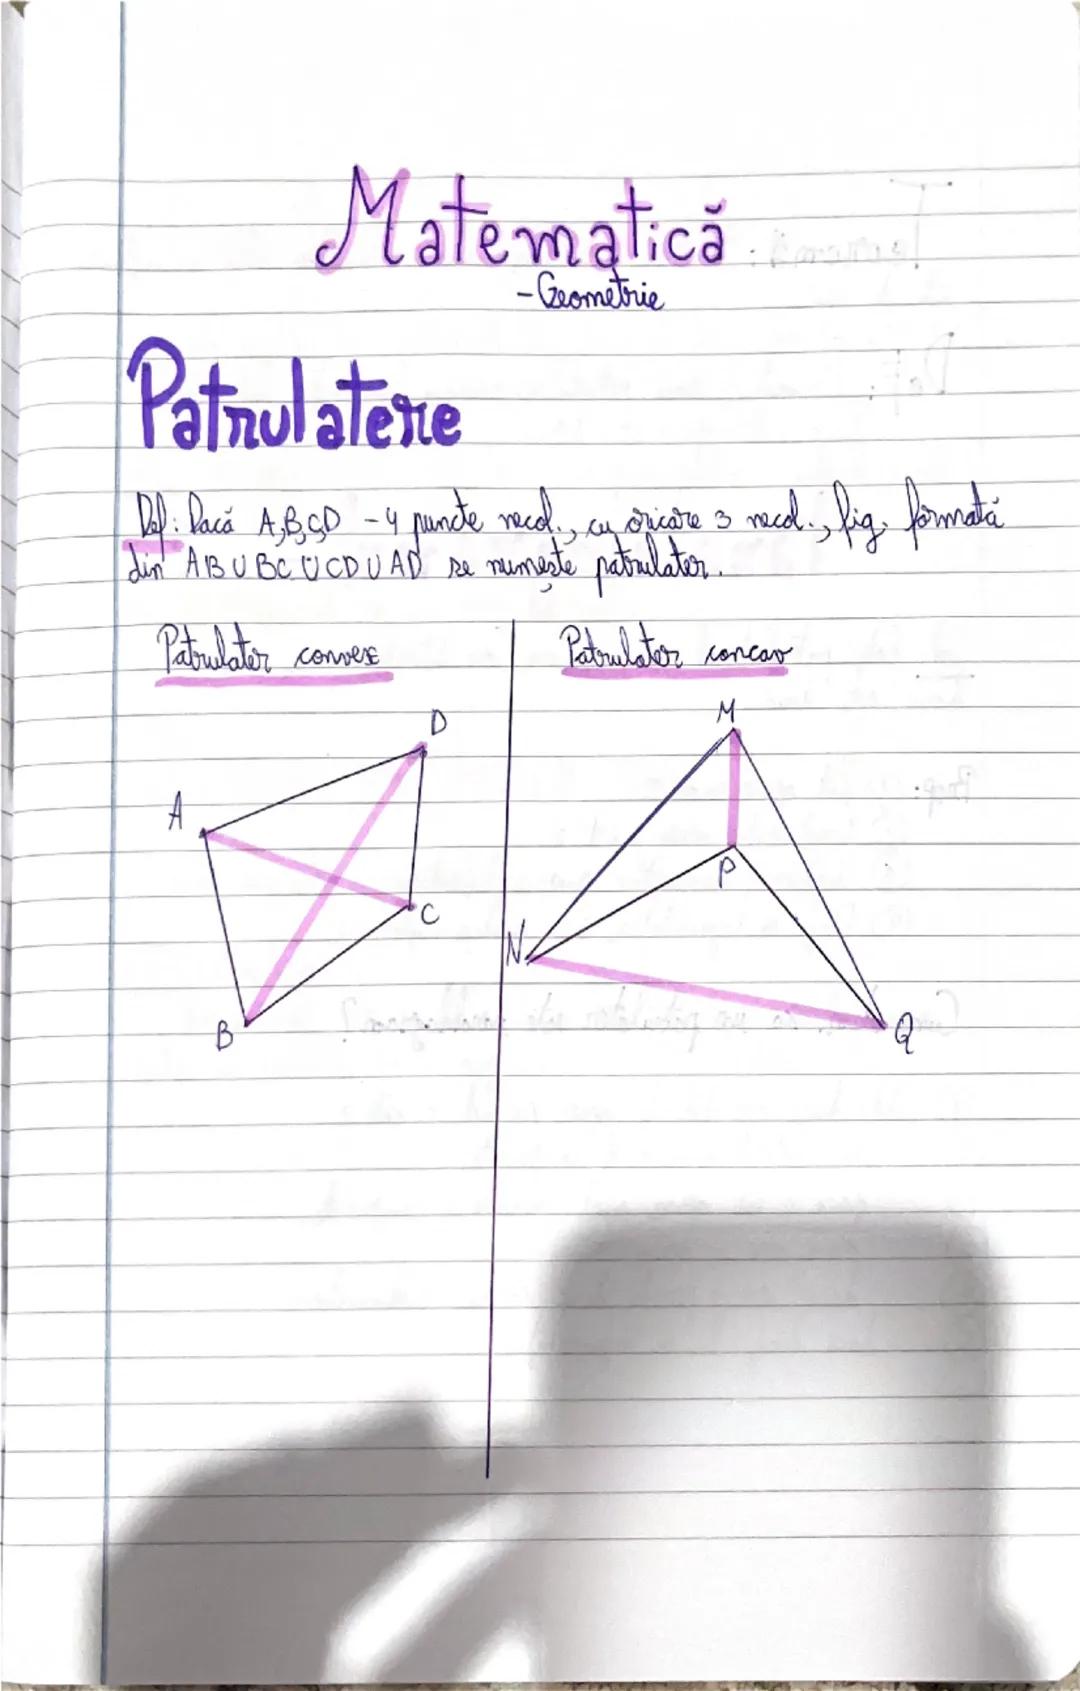 Matematică
- Geometrie
Patrulatere
Def: Dacă A,B,C,D - 4 puncte necol., cu oricare 3 necol., fig. formată
din AB U BC U CD U AD se numește patrulater.
Patrulater convex
Patrulater concav
D
A
C
B
M
P
N
Q